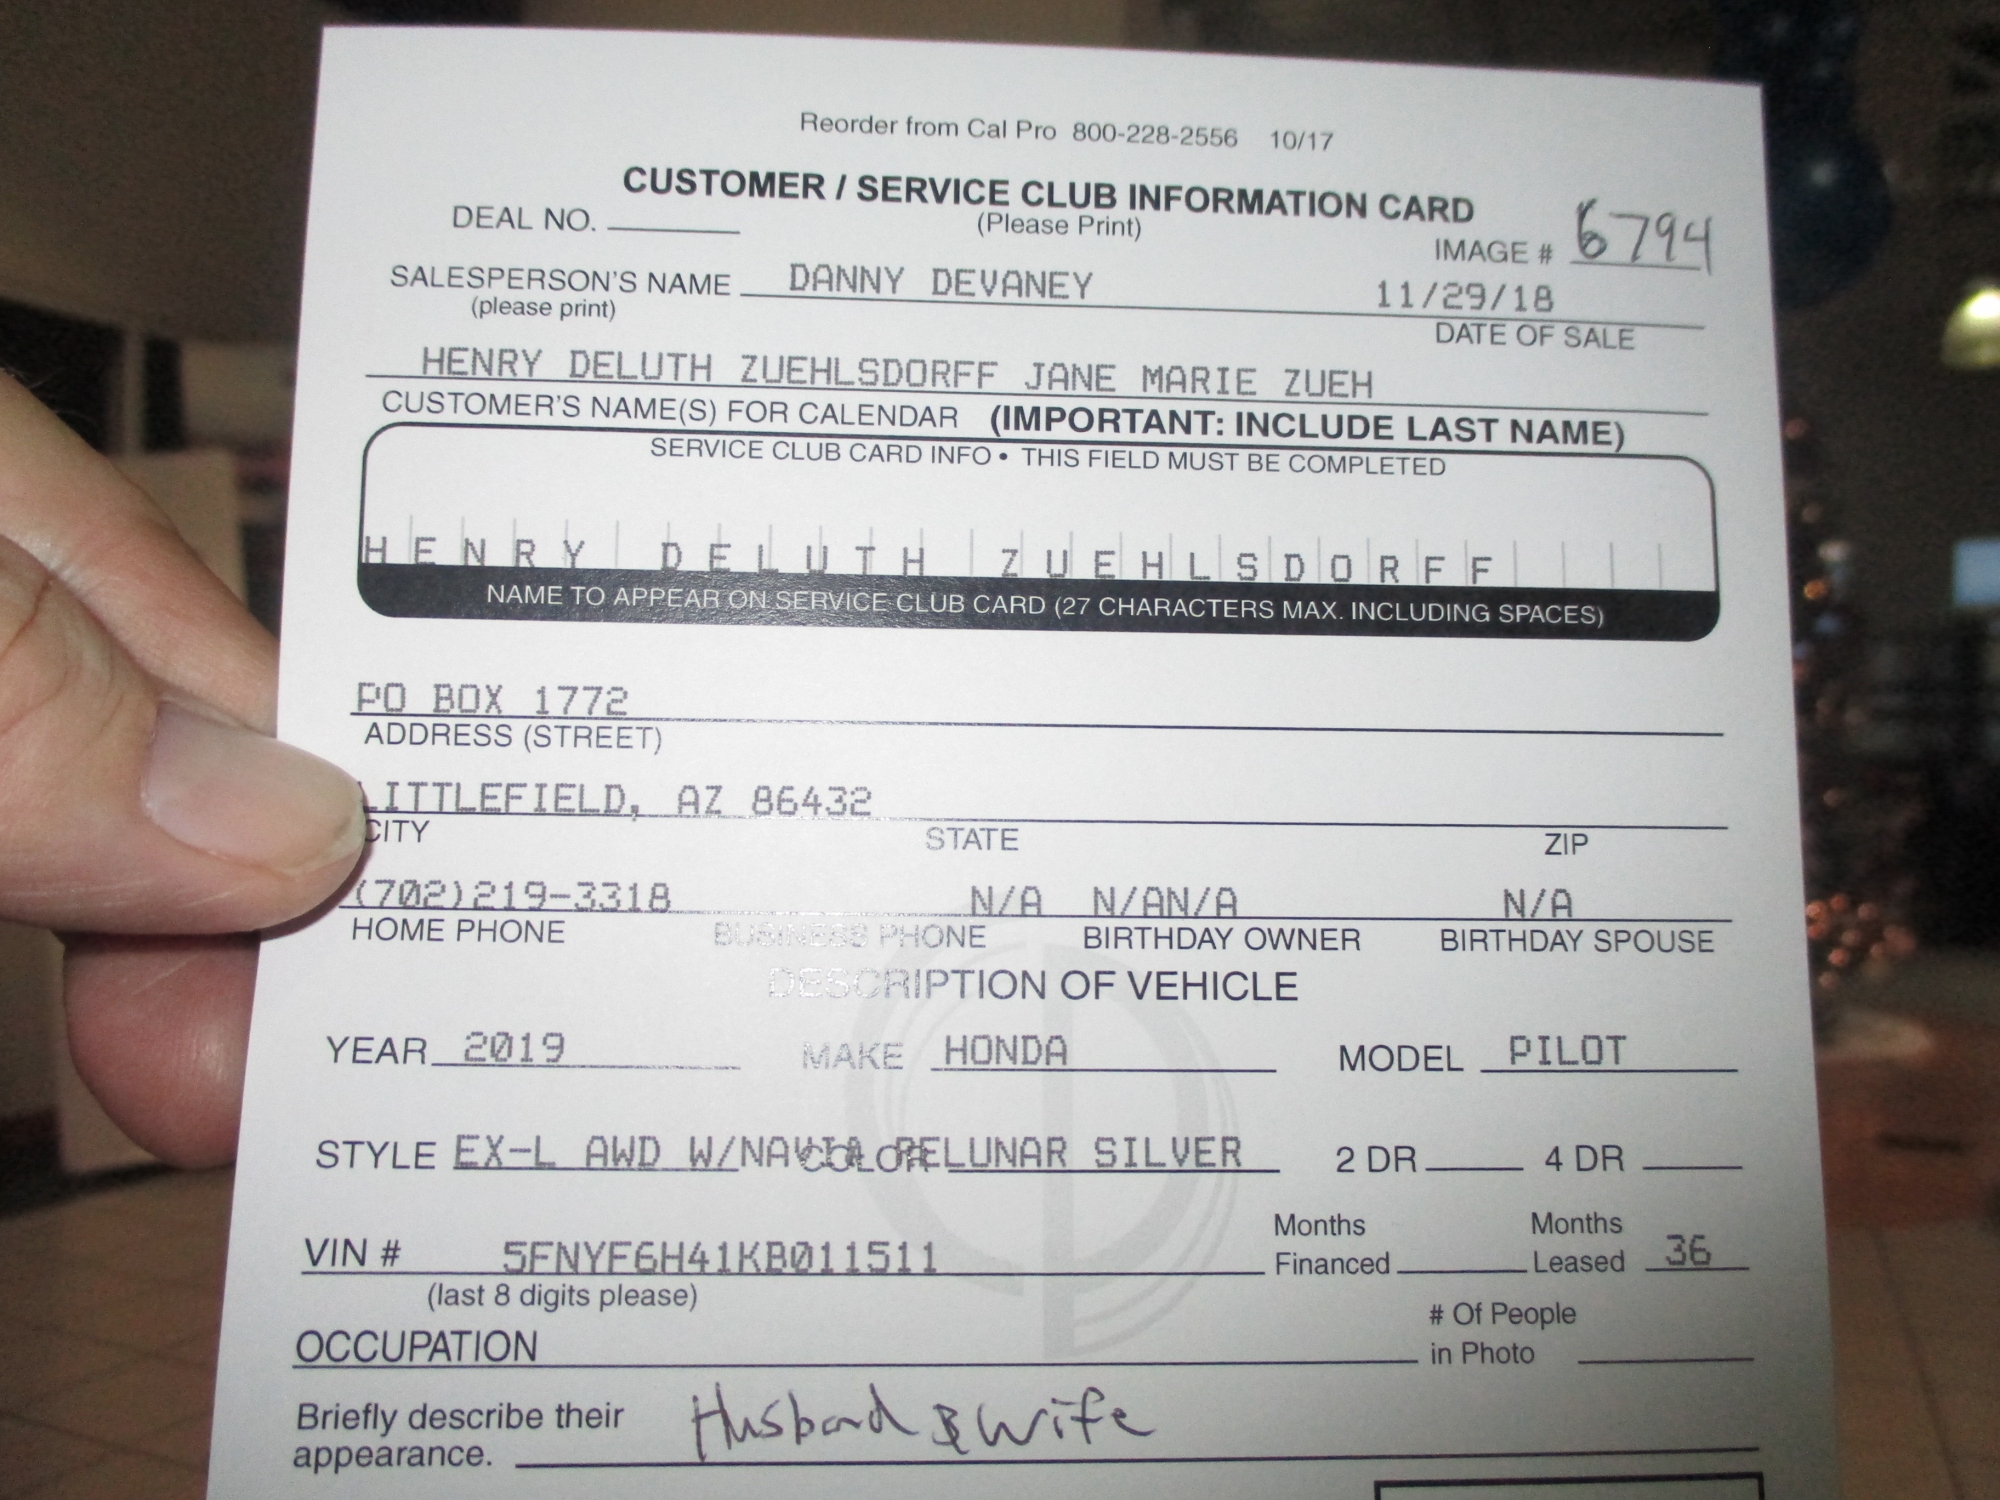 Reorder from Cal Pro 800-228-2556 10/17
CUSTOMER / SERVICE CLUB INFORMATION CARD
(Please Print)
DEAL NO.
IMAGE # 6794
SALESPERSON'S NAME DANNY DEVANEY 11/29/18
(please print) DATE OF SALE
HENRY DELUTH ZUEHLSDORFF JANE MARIE ZUEH
CUSTOMER'S NAME(S) FOR CALENDAR (IMPORTANT: INCLUDE LAST NAME)
SERVICE CLUB CARD INFO • THIS FIELD MUST BE COMPLETED
HENRY DELUTH ZUEHLSDORFF
NAME TO APPEAR ON SERVICE CLUB CARD (27 CHARACTERS MAX. INCLUDING SPACES)
PO BOX 1772
ADDRESS (STREET)
LITTLEFIELD, AZ 86432
CITY STATE ZIP
(702)219-3318 N/A N/AN/A N/A
HOME PHONE BUSINESS PHONE BIRTHDAY OWNER BIRTHDAY SPOUSE
DESCRIPTION OF VEHICLE
YEAR 2019 MAKE HONDA MODEL PILOT
STYLE EX-L AWD W/NAV COLOR LUNAR SILVER 2 DR 4 DR
VIN # 5FNYF6H41KB011511 Months Financed Months Leased 36
(last 8 digits please)
OCCUPATION # Of People in Photo
Briefly describe their appearance. Husband & Wife